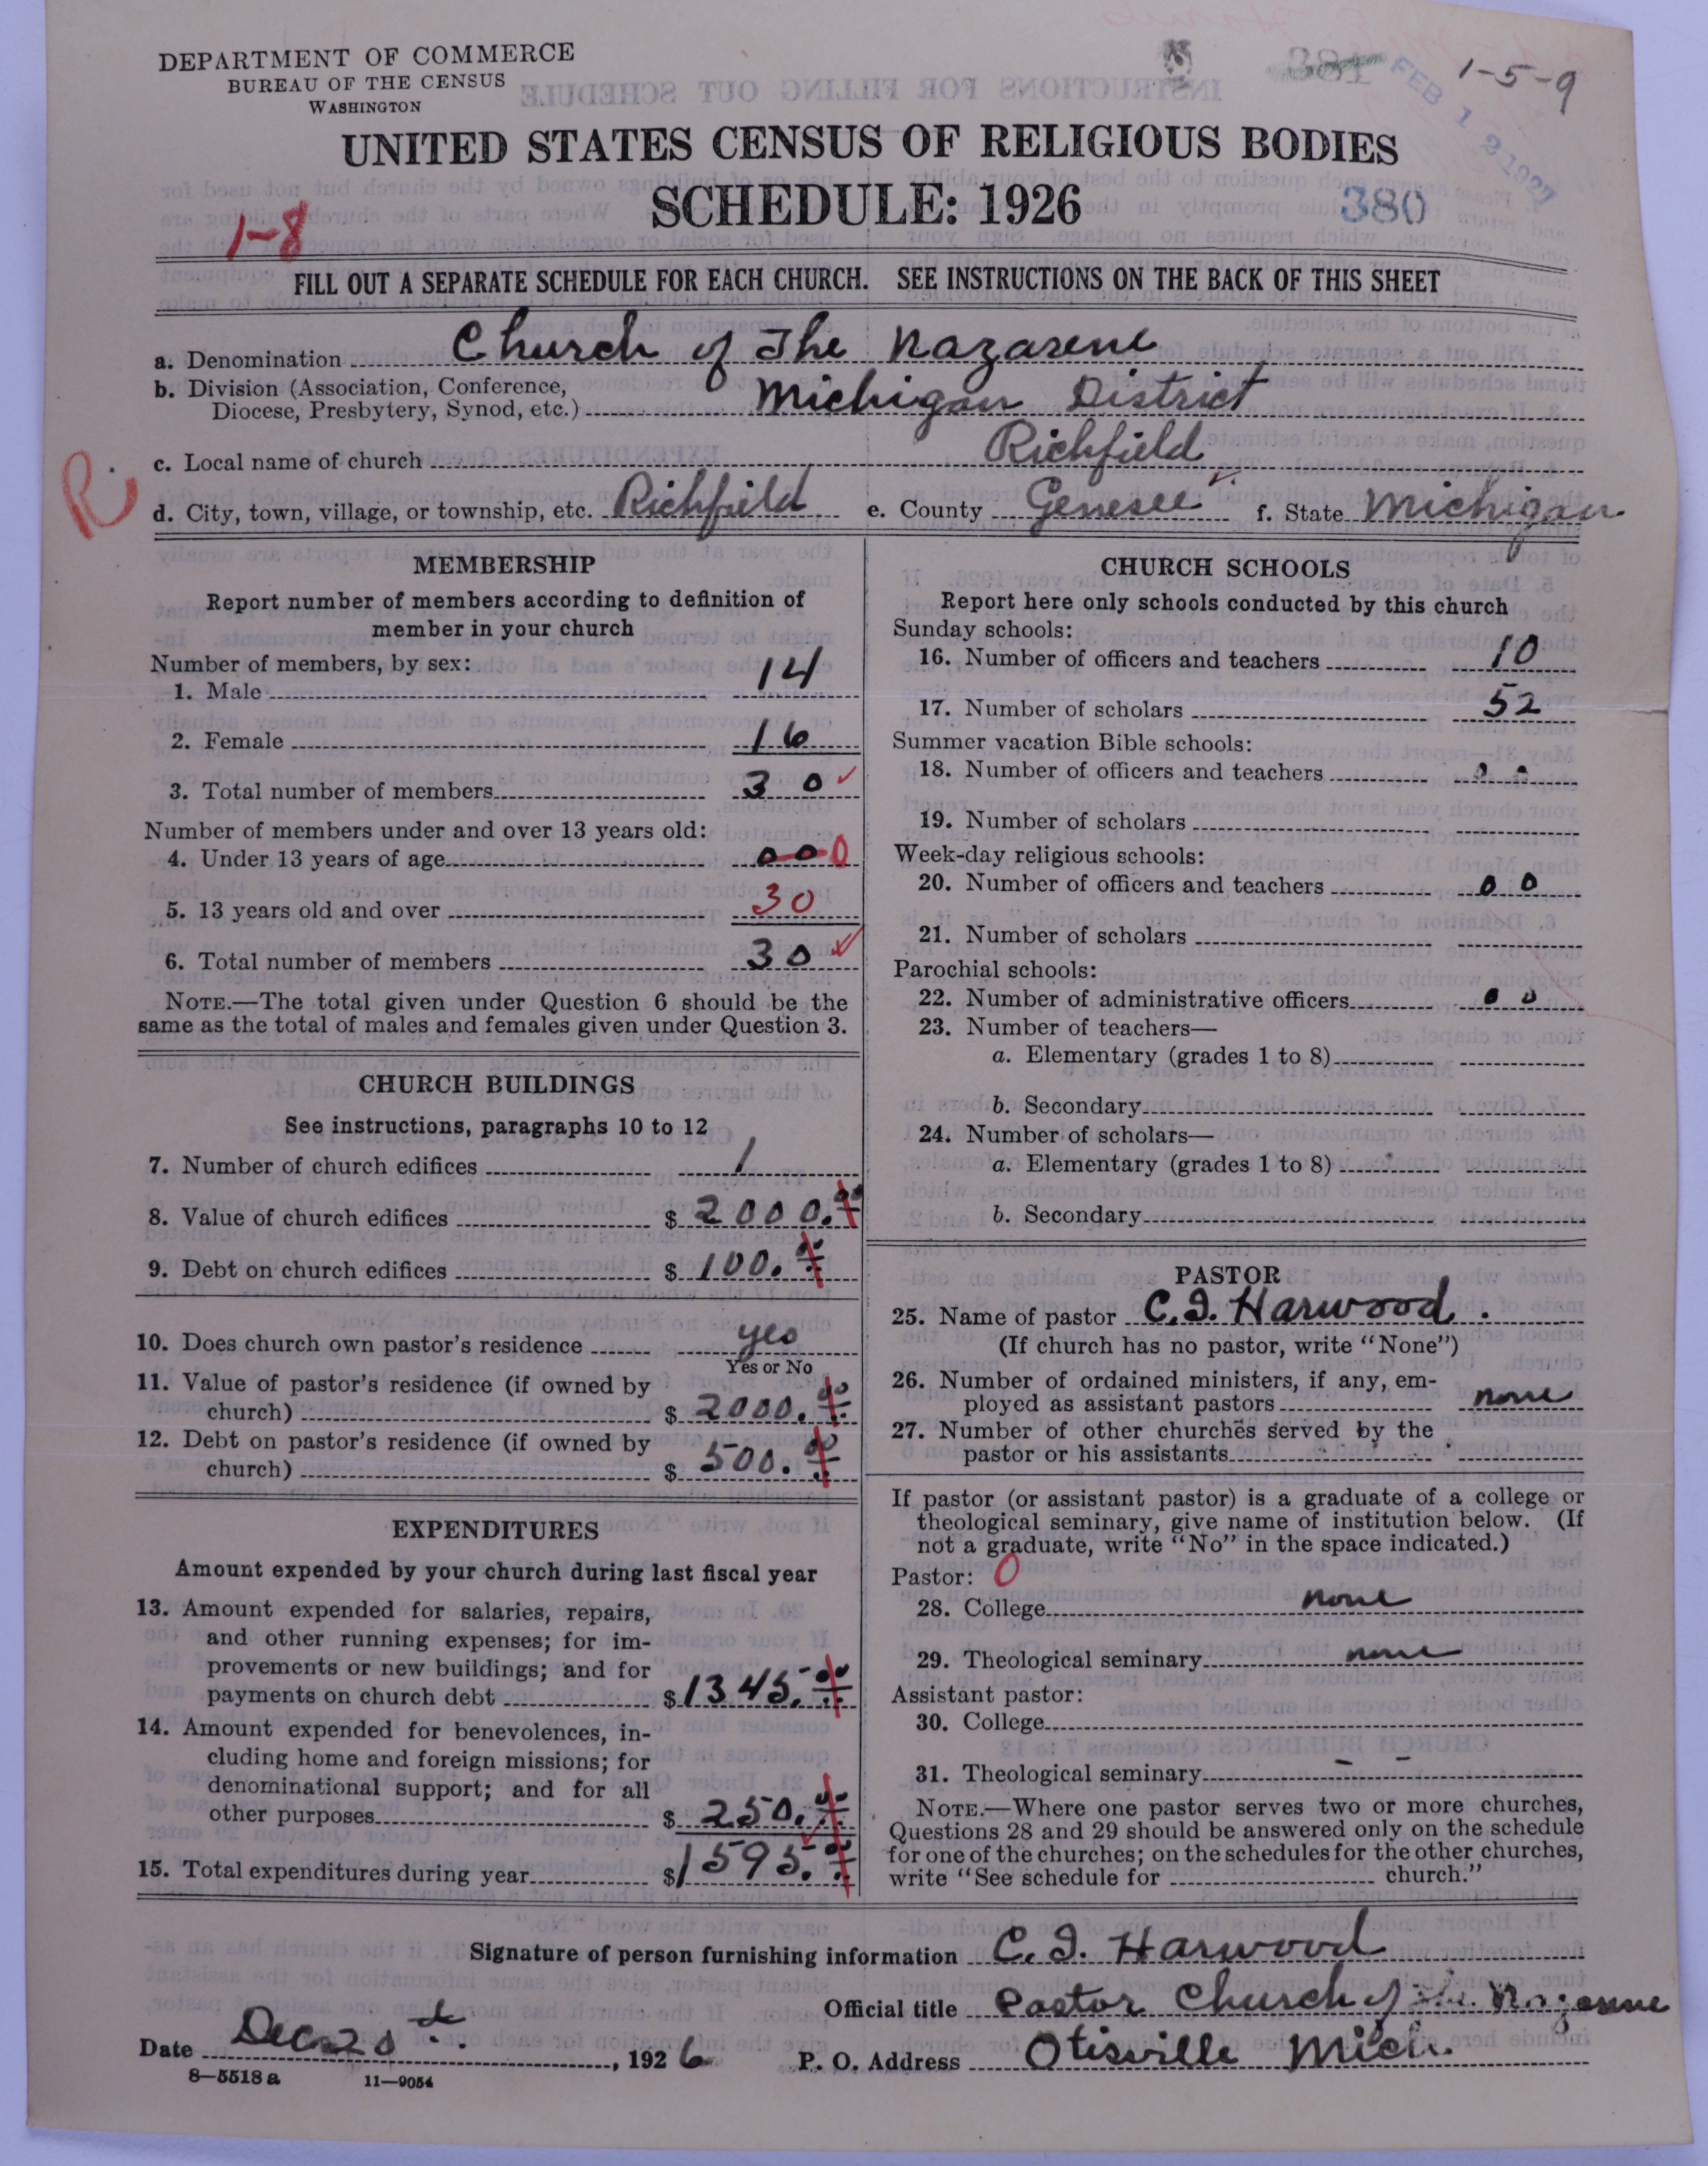 DEPARTMENT OF COMMERCE
BUREAU OF THE CENSUS
WASHINGTON
381
FEB 12 1927
1-5-9
UNITED STATES CENSUS OF RELIGIOUS BODIES
SCHEDULE: 1926
380
1-8
FILL OUT A SEPARATE SCHEDULE FOR EACH CHURCH. SEE INSTRUCTIONS ON THE BACK OF THIS SHEET
a. Denomination Church of The Nazarene
b. Division (Association, Conference,
Diocese, Presbytery, Synod, etc.) Michigan District
c. Local name of church Richfield
R.
d. City, town, village, or township, etc. Richfield e. County Genesee f. State Michigan
MEMBERSHIP
Report number of members according to definition of
member in your church
Number of members, by sex:
1. Male 14
2. Female 16
3. Total number of members 30 ✓
Number of members under and over 13 years old:
4. Under 13 years of age 00 0
5. 13 years old and over 30
6. Total number of members 30 ✓
NOTE.—The total given under Question 6 should be the
same as the total of males and females given under Question 3.
CHURCH BUILDINGS
See instructions, paragraphs 10 to 12
7. Number of church edifices 1
8. Value of church edifices $ 2000.00
9. Debt on church edifices $ 100.00
10. Does church own pastor's residence yes
Yes or No
11. Value of pastor's residence (if owned by
church) $ 2000.00
12. Debt on pastor's residence (if owned by
church) $ 500.00
EXPENDITURES
Amount expended by your church during last fiscal year
13. Amount expended for salaries, repairs,
and other running expenses; for im-
provements or new buildings; and for
payments on church debt $ 1345.00
14. Amount expended for benevolences, in-
cluding home and foreign missions; for
denominational support; and for all
other purposes $ 250.00
15. Total expenditures during year $ 1595.00
CHURCH SCHOOLS
Report here only schools conducted by this church
Sunday schools:
16. Number of officers and teachers 10
17. Number of scholars 52
Summer vacation Bible schools:
18. Number of officers and teachers 0 0
19. Number of scholars
Week-day religious schools:
20. Number of officers and teachers 0 0
21. Number of scholars
Parochial schools:
22. Number of administrative officers 0 0
23. Number of teachers—
a. Elementary (grades 1 to 8)
b. Secondary
24. Number of scholars—
a. Elementary (grades 1 to 8)
b. Secondary
PASTOR
25. Name of pastor C. I. Harwood.
(If church has no pastor, write "None")
26. Number of ordained ministers, if any, em-
ployed as assistant pastors none
27. Number of other churches served by the
pastor or his assistants
If pastor (or assistant pastor) is a graduate of a college or
theological seminary, give name of institution below. (If
not a graduate, write "No" in the space indicated.)
Pastor: 0
28. College none
29. Theological seminary none
Assistant pastor:
30. College
31. Theological seminary — —
NOTE.—Where one pastor serves two or more churches,
Questions 28 and 29 should be answered only on the schedule
for one of the churches; on the schedules for the other churches,
write "See schedule for church."
Signature of person furnishing information C. I. Harwood
Official title Pastor Church of the Nazarene
Date Dec 20th. , 1926 P. O. Address Otisville Mich.
8—5518 a 11—9054